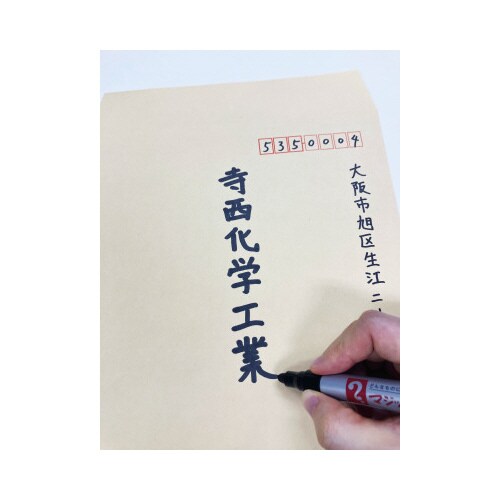 5350004
大阪市旭区生江二
寺西化学工業
2
マジ